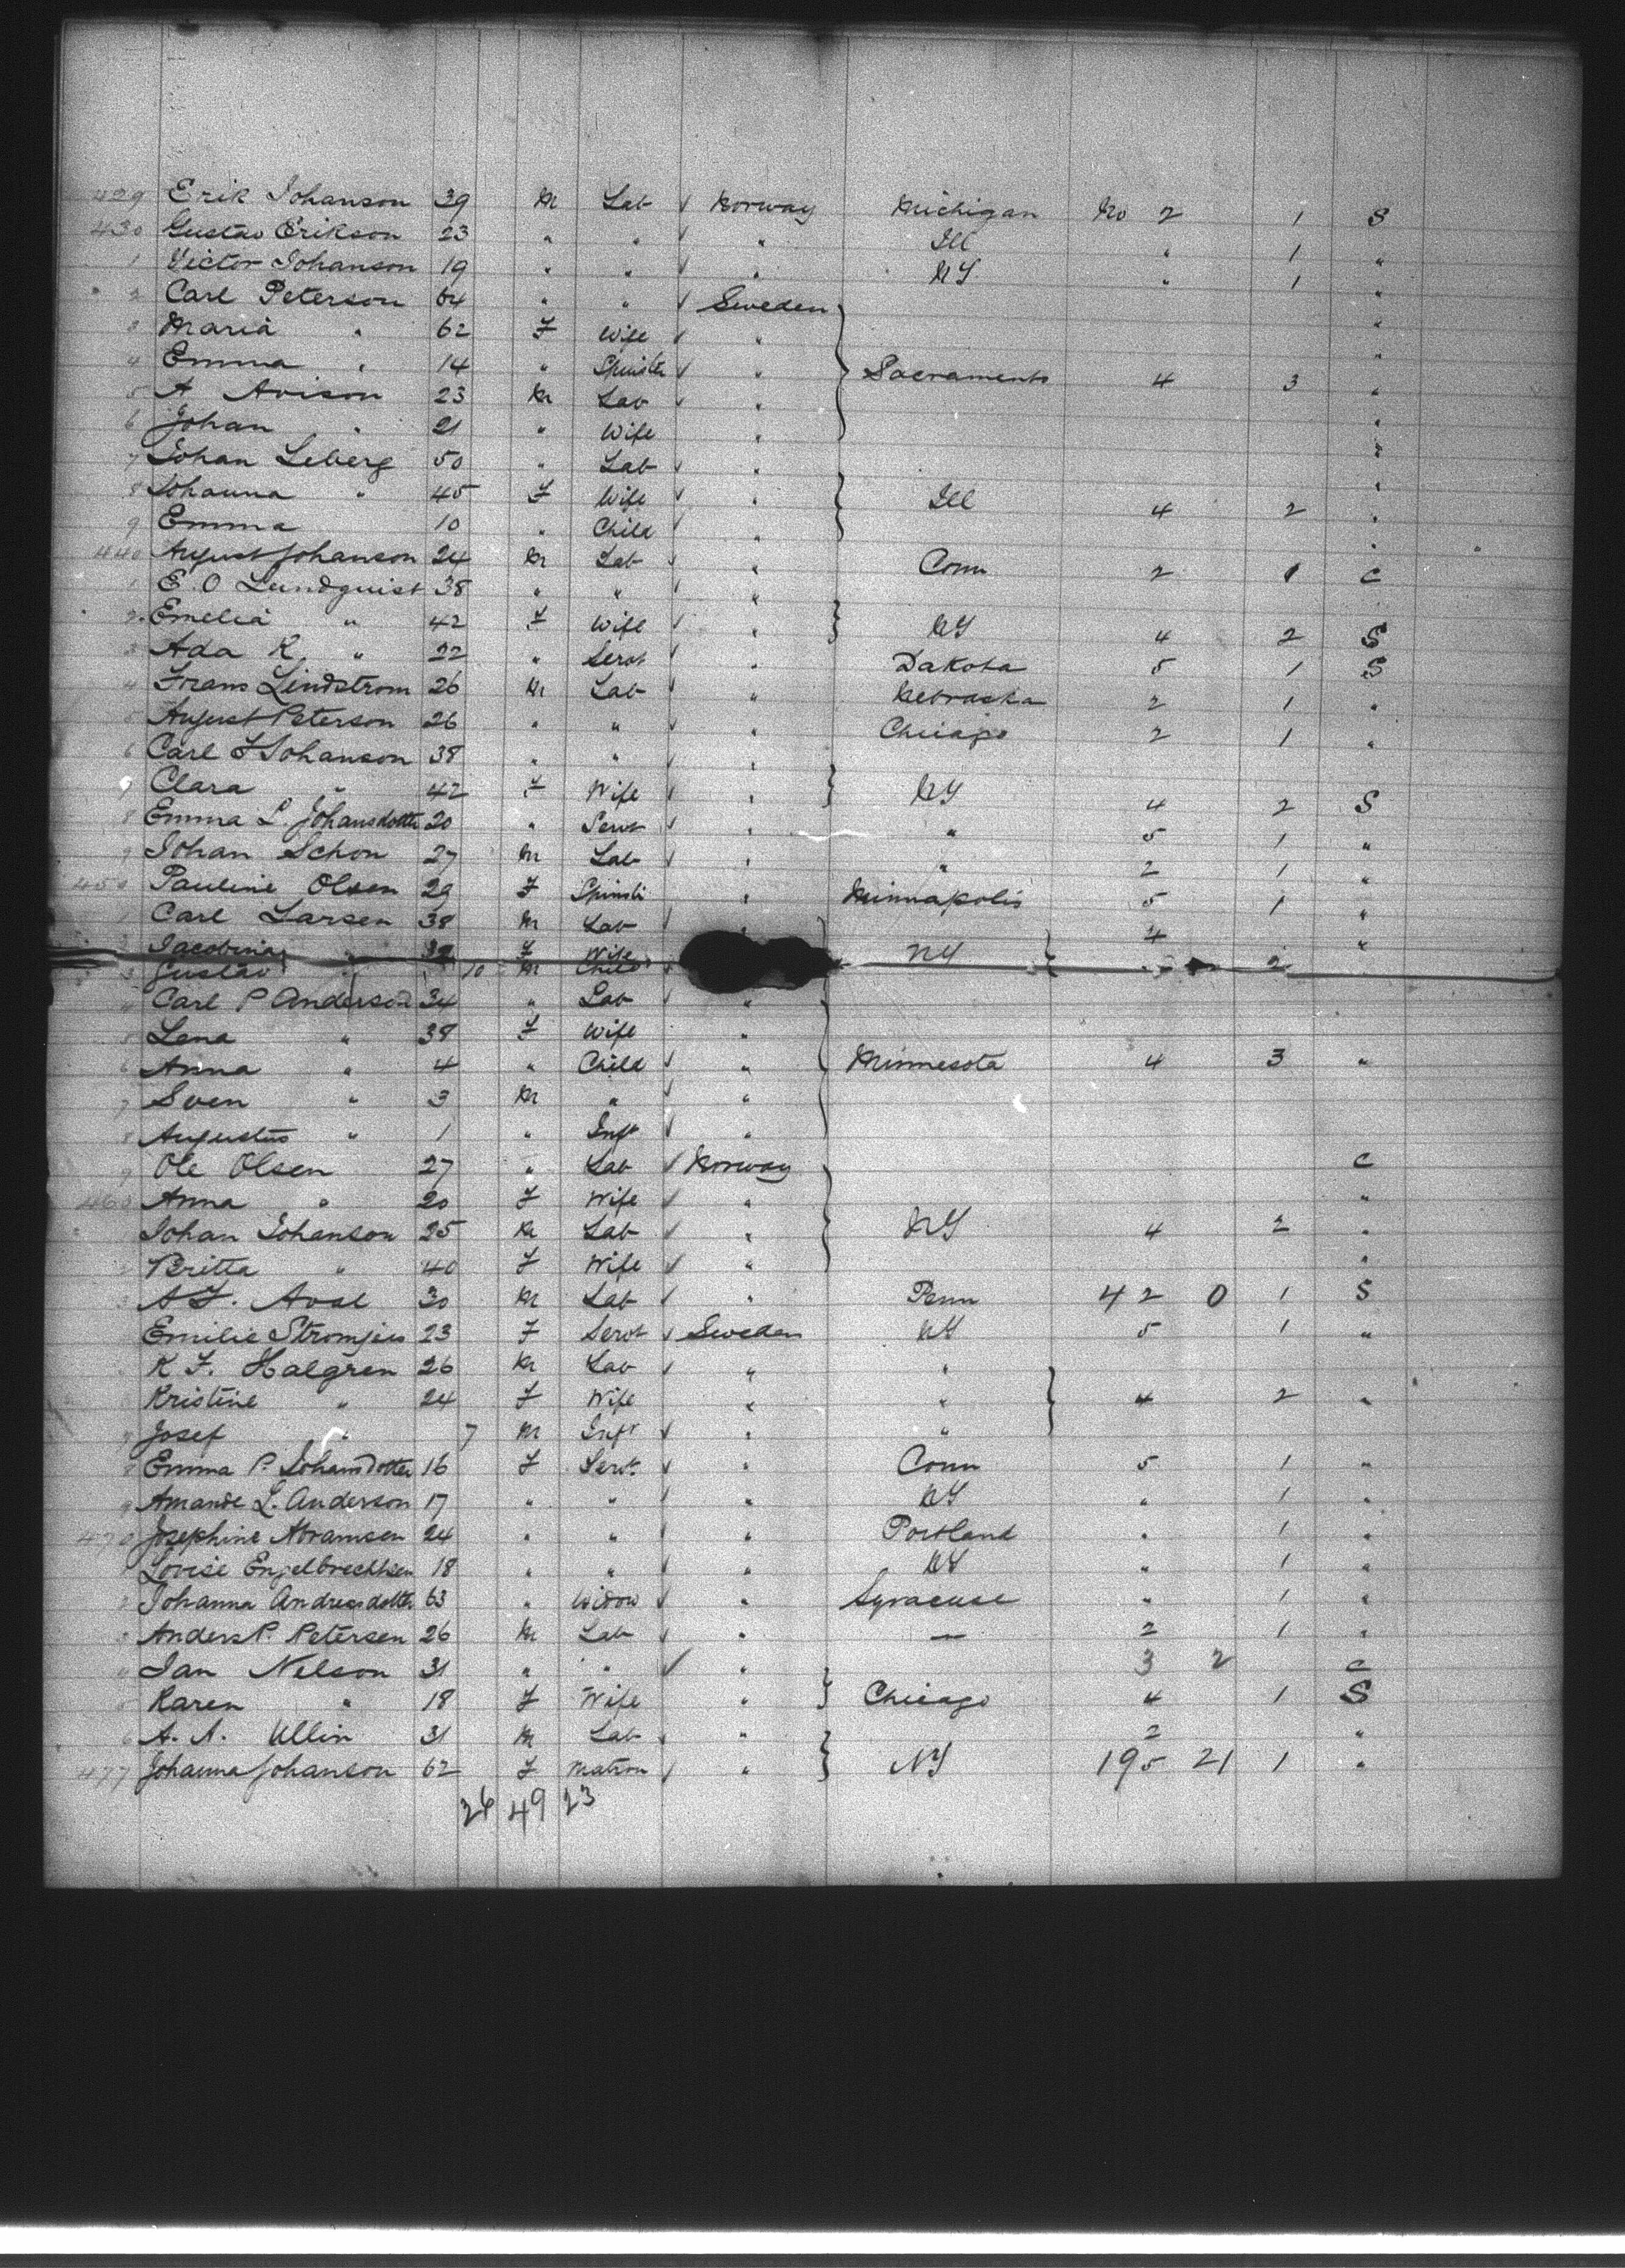 429 Erik Johanson 39 M Lab ✓ Norway Michigan No 2 1 S
430 Gustav Erikson 23 " " ✓ " Ill " 1 "
1 Victor Johanson 19 " " ✓ " NY " 1 "
2 Carl Peterson 64 " " ✓ Sweden "
3 Maria " 62 F Wife ✓ " "
4 Emma " 14 " Spinster ✓ " Sacramento 4 3 "
5 A Avison 23 M Lab ✓ " "
6 Johan " 21 " Wife " "
7 Johan Leberg 50 " Lab ✓ " "
8 Johanna " 45 F Wife ✓ " Ill 4 2 "
9 Emma 10 " Child ✓ " "
440 August Johanson 24 M Lab ✓ " Conn 2 1 C
1 E. O Lundquist 38 " " ✓ "
2 Emelia " 42 F Wife ✓ " NY 4 2 S
3 Ada K " 22 " Servt ✓ " Dakota 5 1 S
4 Frans Lindstrom 26 M Lab ✓ " Nebraska 2 1 "
5 August Peterson 26 " " ✓ " Chicago 2 1 "
6 Carl F Johanson 38 " " ✓ "
7 Clara " 42 F Wife ✓ " NY 4 2 S
8 Emma L. Johansdotter 20 " Servt ✓ " " 5 1 "
9 Johan Schon 27 M Lab ✓ " " 2 1 "
450 Pauline Olsen 29 F Spinst " Minnapolis 5 1 "
1 Carl Larsen 38 M Lab ✓ " 4 "
2 Jacobina " F Wife NY 2
3 Gustav " 10 M Child
4 Carl P Anderson 34 " Lab ✓ "
5 Lena " 38 F Wife "
6 Anna " 4 " Child ✓ " Minnesota 4 3 "
7 Sven " 3 M " ✓ "
8 Augustus " 1 " Inft "
9 Ole Olsen 27 " Lab ✓ Norway C
460 Anna " 20 F Wife ✓ " "
Johan Johanson 25 M Lab ✓ " NY 4 2 "
Britta " 40 F Wife ✓ " "
30 M Lab ✓ " Penn 4 2 0 1 S
Emilie 23 F Servt ✓ Sweden NY 5 1 "
K F. Halgren 26 M Lab ✓ " "
Kristine " 24 F Wife " " 4 2 "
Josef " 7 M Inft ✓ " "
8 Emma P. Johansdotter 16 F Servt ✓ " Conn 5 1 "
9 Amande L. Anderson 17 " " ✓ " NY " 1 "
470 Josephine Abramsen 24 " " ✓ " Portland " 1 "
Lovise Engelbrechtsen 18 " " ✓ " NY " 1 "
2 Johanna Andreasdotter 63 " Widow ✓ " Syracuse " 1 "
3 Anders P. Petersen 26 M Lab ✓ " — 2 1 "
4 Jan Nelson 31 " " ✓ " 3 2 C
5 Karen " 18 F Wife " Chicago 4 1 S
6 A. A. Ullin 31 M Lab ✓ " 2 "
477 Johanna Johanson 62 F Matron ✓ " NY 195 21 1 "
26 49 23